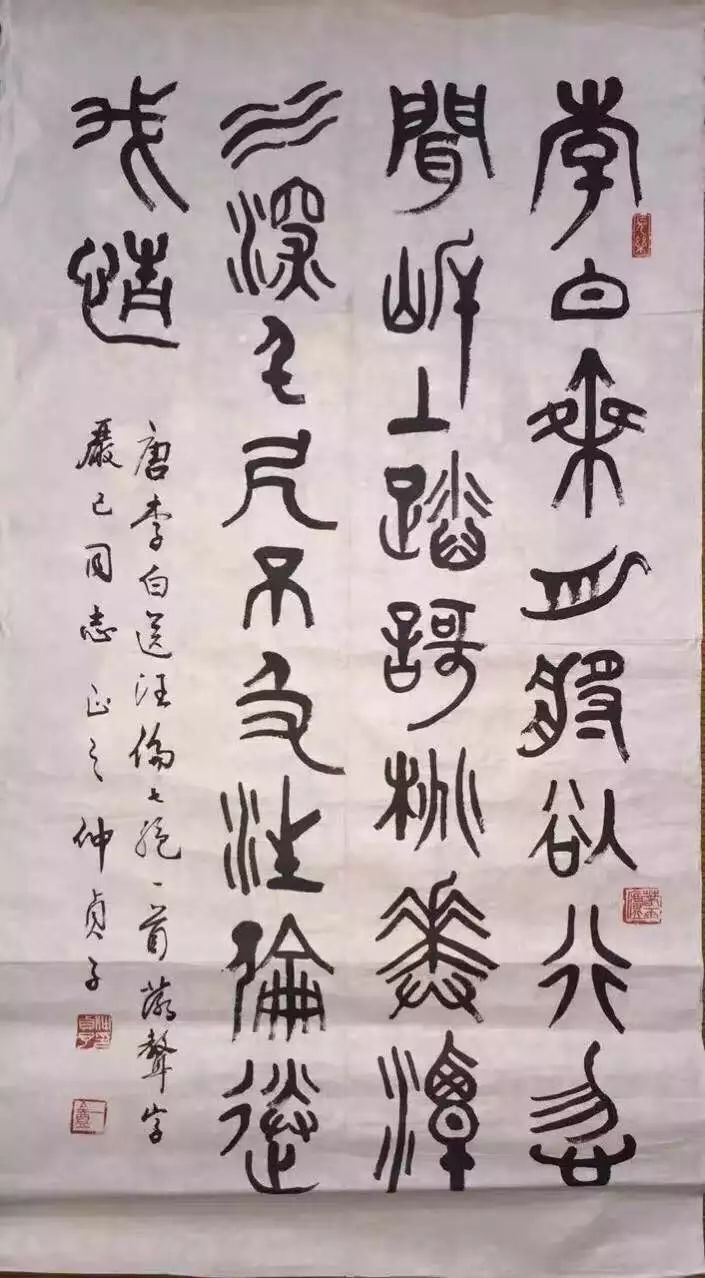 李白乘舟將欲行忽
聞岸上踏謌桃華潭
水深千尺不及汪倫送
我情
唐李白送汪倫七絕一首聲字
嚴己同志正之仲貞子